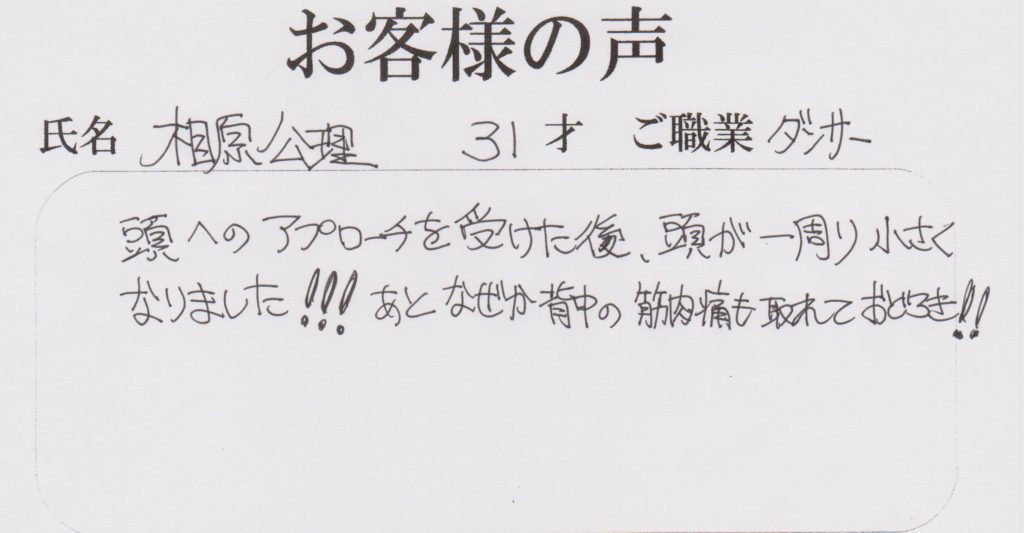 お客様の声
氏名 相原公理 31才 ご職業 ダンサー
頭へのアプローチを受けた後、頭が一周り小さく
なりました!!! あとなぜか背中の筋肉痛も取れておどろき!!